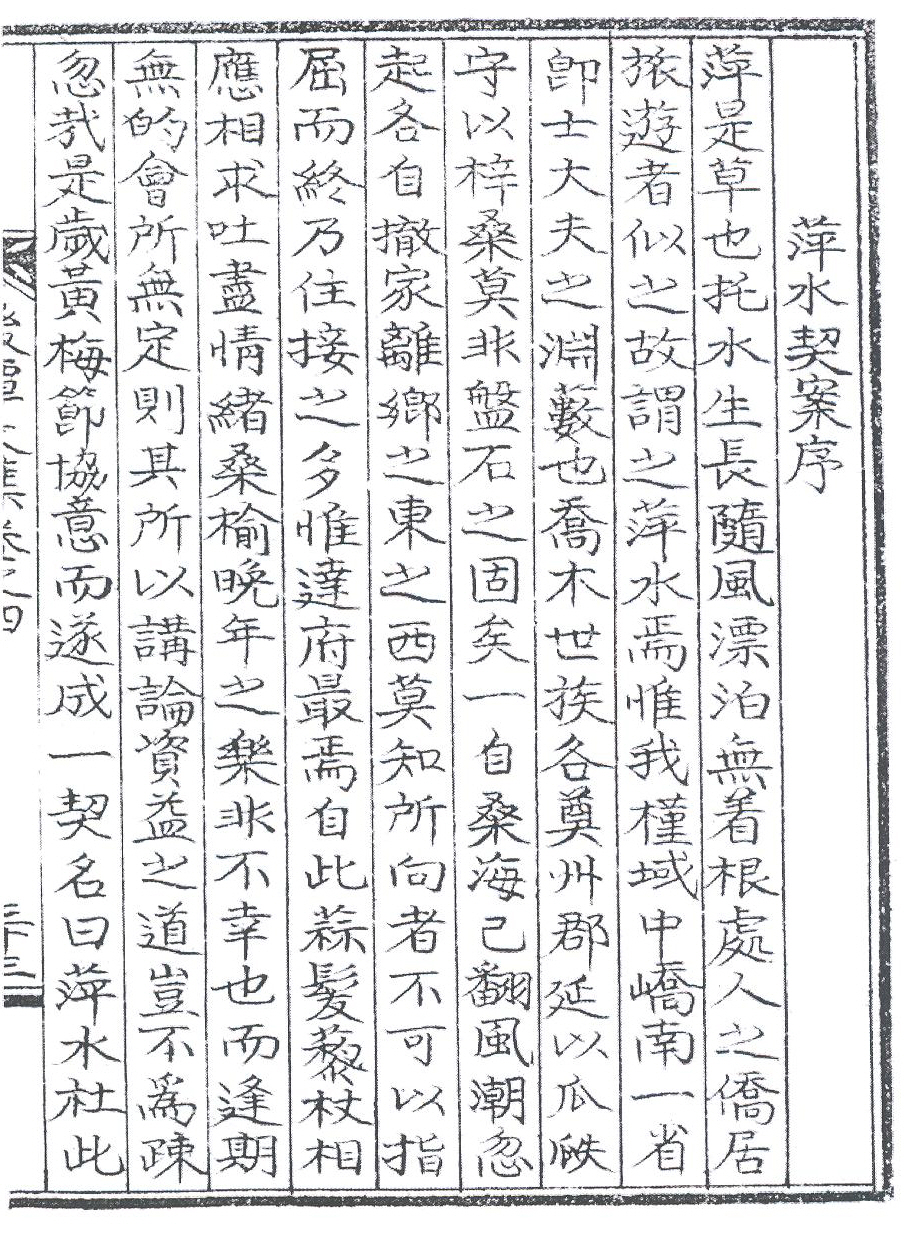 萍水契案序
萍是草也托水生長隨風漂泊無着根處人之僑居
旅遊者似之故謂之萍水焉惟我槿域中嶠南一省
卽士大夫之淵藪也喬木世族各奠州郡延以瓜瓞
守以梓桑莫非盤石之固矣一自桑海己翻風潮忽
起各自撤家離鄉之東之西莫知所向者不可以指
屈而終乃住接之多惟達府最焉自此蒜髮藜杖相
應相求吐盡情緖桑楡晩年之樂非不幸也而逢期
無的會所無定則其所以講論資益之道豈不爲踈
忽哉是歲黃梅節協意而遂成一契名曰萍水社此
集卷之四
三十三